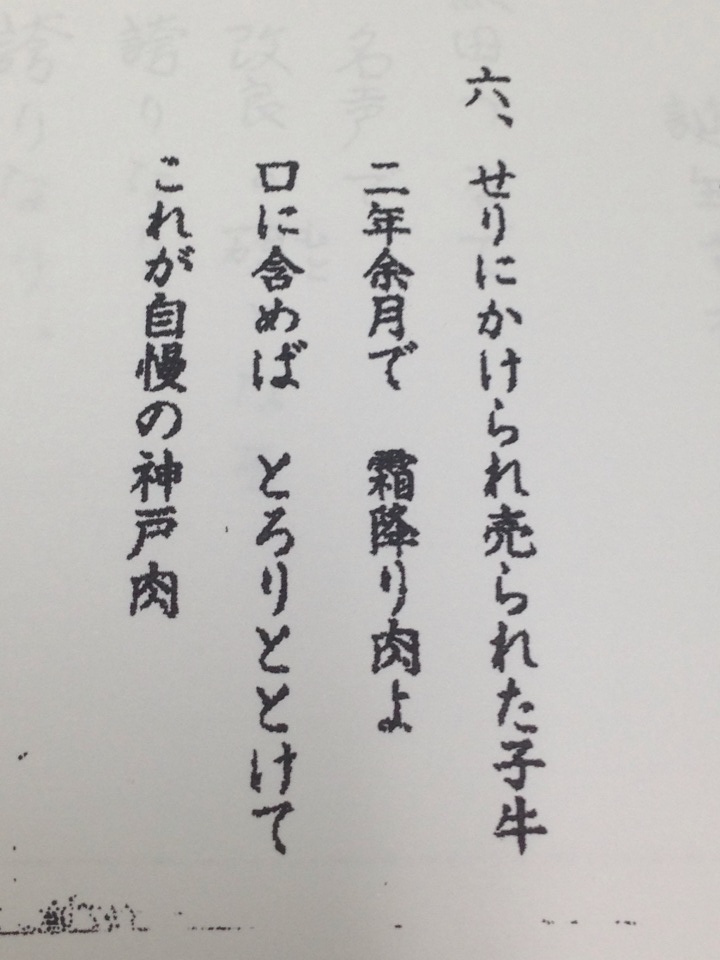 六、せりにかけられ売られた子牛
二年余月で　霜降り肉よ
口に含めば　とろりととけて
これが自慢の神戸肉